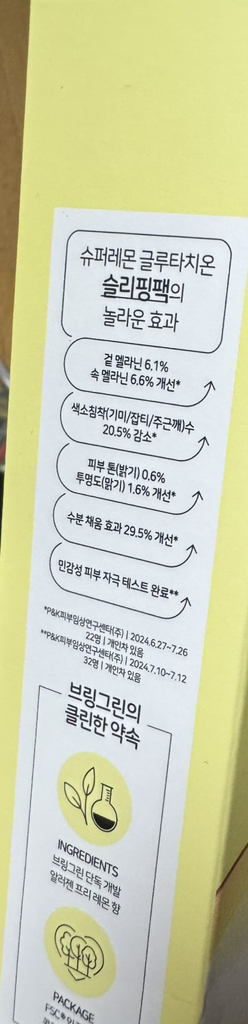 슈퍼레몬 글루타치온
슬리핑팩의
놀라운 효과
겉 멜라닌 6.1%
속 멜라닌 6.6% 개선*
색소침착(기미/잡티/주근깨)수
20.5% 감소*
피부 톤(밝기) 0.6%
투명도(맑기) 1.6% 개선*
수분 채움 효과 29.5% 개선*
민감성 피부 자극 테스트 완료**
*P&K피부임상연구센타(주) | 2024.6.27~7.26
22명 | 개인차 있음
**P&K피부임상연구센타(주) | 2024.7.10~7.12
32명 | 개인차 있음
브링그린의
클린한 약속
INGREDIENTS
브링그린 단독 개발
알러젠 프리 레몬 향
PACKAGE
FSC®